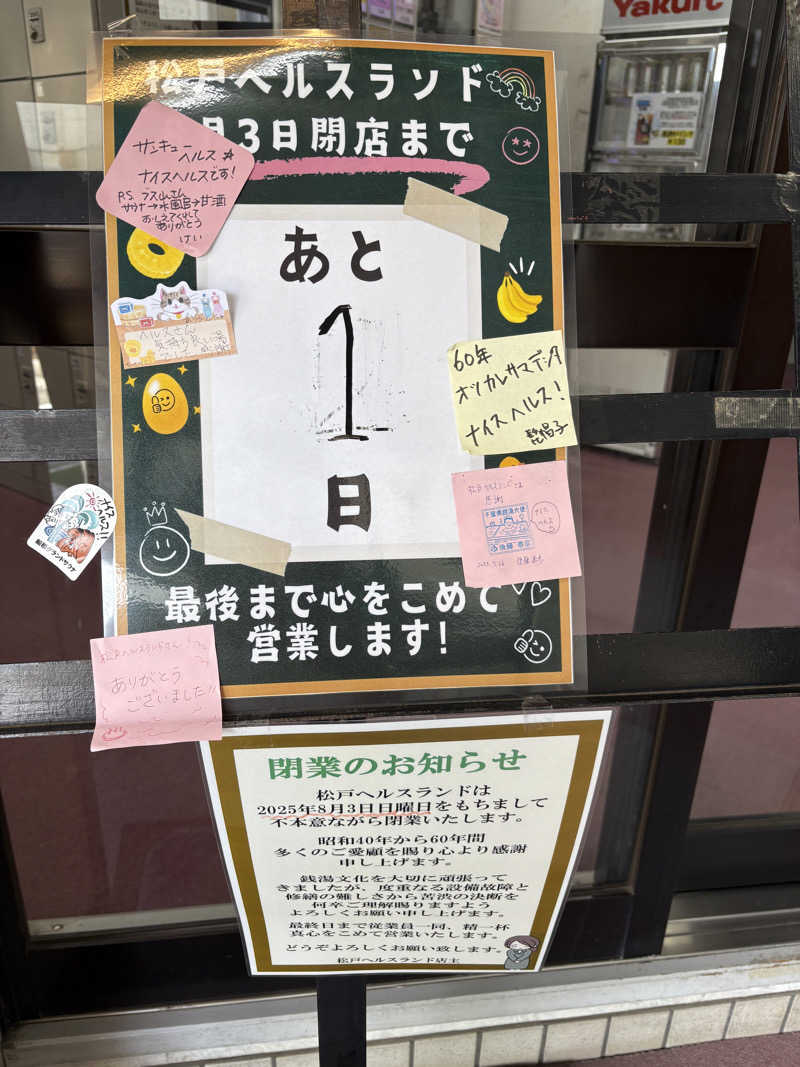 Yakult
松戸ヘルスランド
月3日閉店まで
サンキュー
ヘルス☆
ナイスヘルスです!
P.S.
サウナ→水風呂→甘酒
おしえてくれて
ありがとう
けい
あと
1
日
ヘルスさん
60年
オツカレサマデシタ
ナイスヘルス!
感謝
最後まで心をこめて
営業します!
松戸ヘルスランドさん
ありがとう
ございました!!
閉業のお知らせ
松戸ヘルスランドは
2025年8月3日日曜日をもちまして
不本意ながら閉業いたします。
昭和40年から60年間
多くのご愛顧を賜り心より感謝
申し上げます。
銭湯文化を大切に頑張って
きましたが、度重なる設備故障と
修繕の難しさから苦渋の決断を
何卒ご理解賜りますよう
よろしくお願い申し上げます。
最終日まで従業員一同、精一杯
真心をこめて営業いたします。
どうぞよろしくお願い致します。
松戸ヘルスランド店主